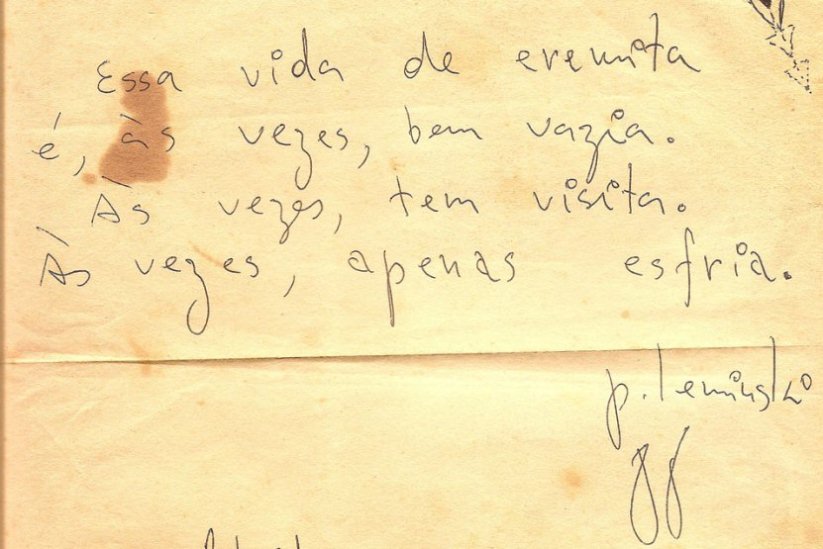 Essa vida de eremita
é, às vezes, bem vazia.
Às vezes, tem visita.
Às vezes, apenas esfria.
p. leminski
88